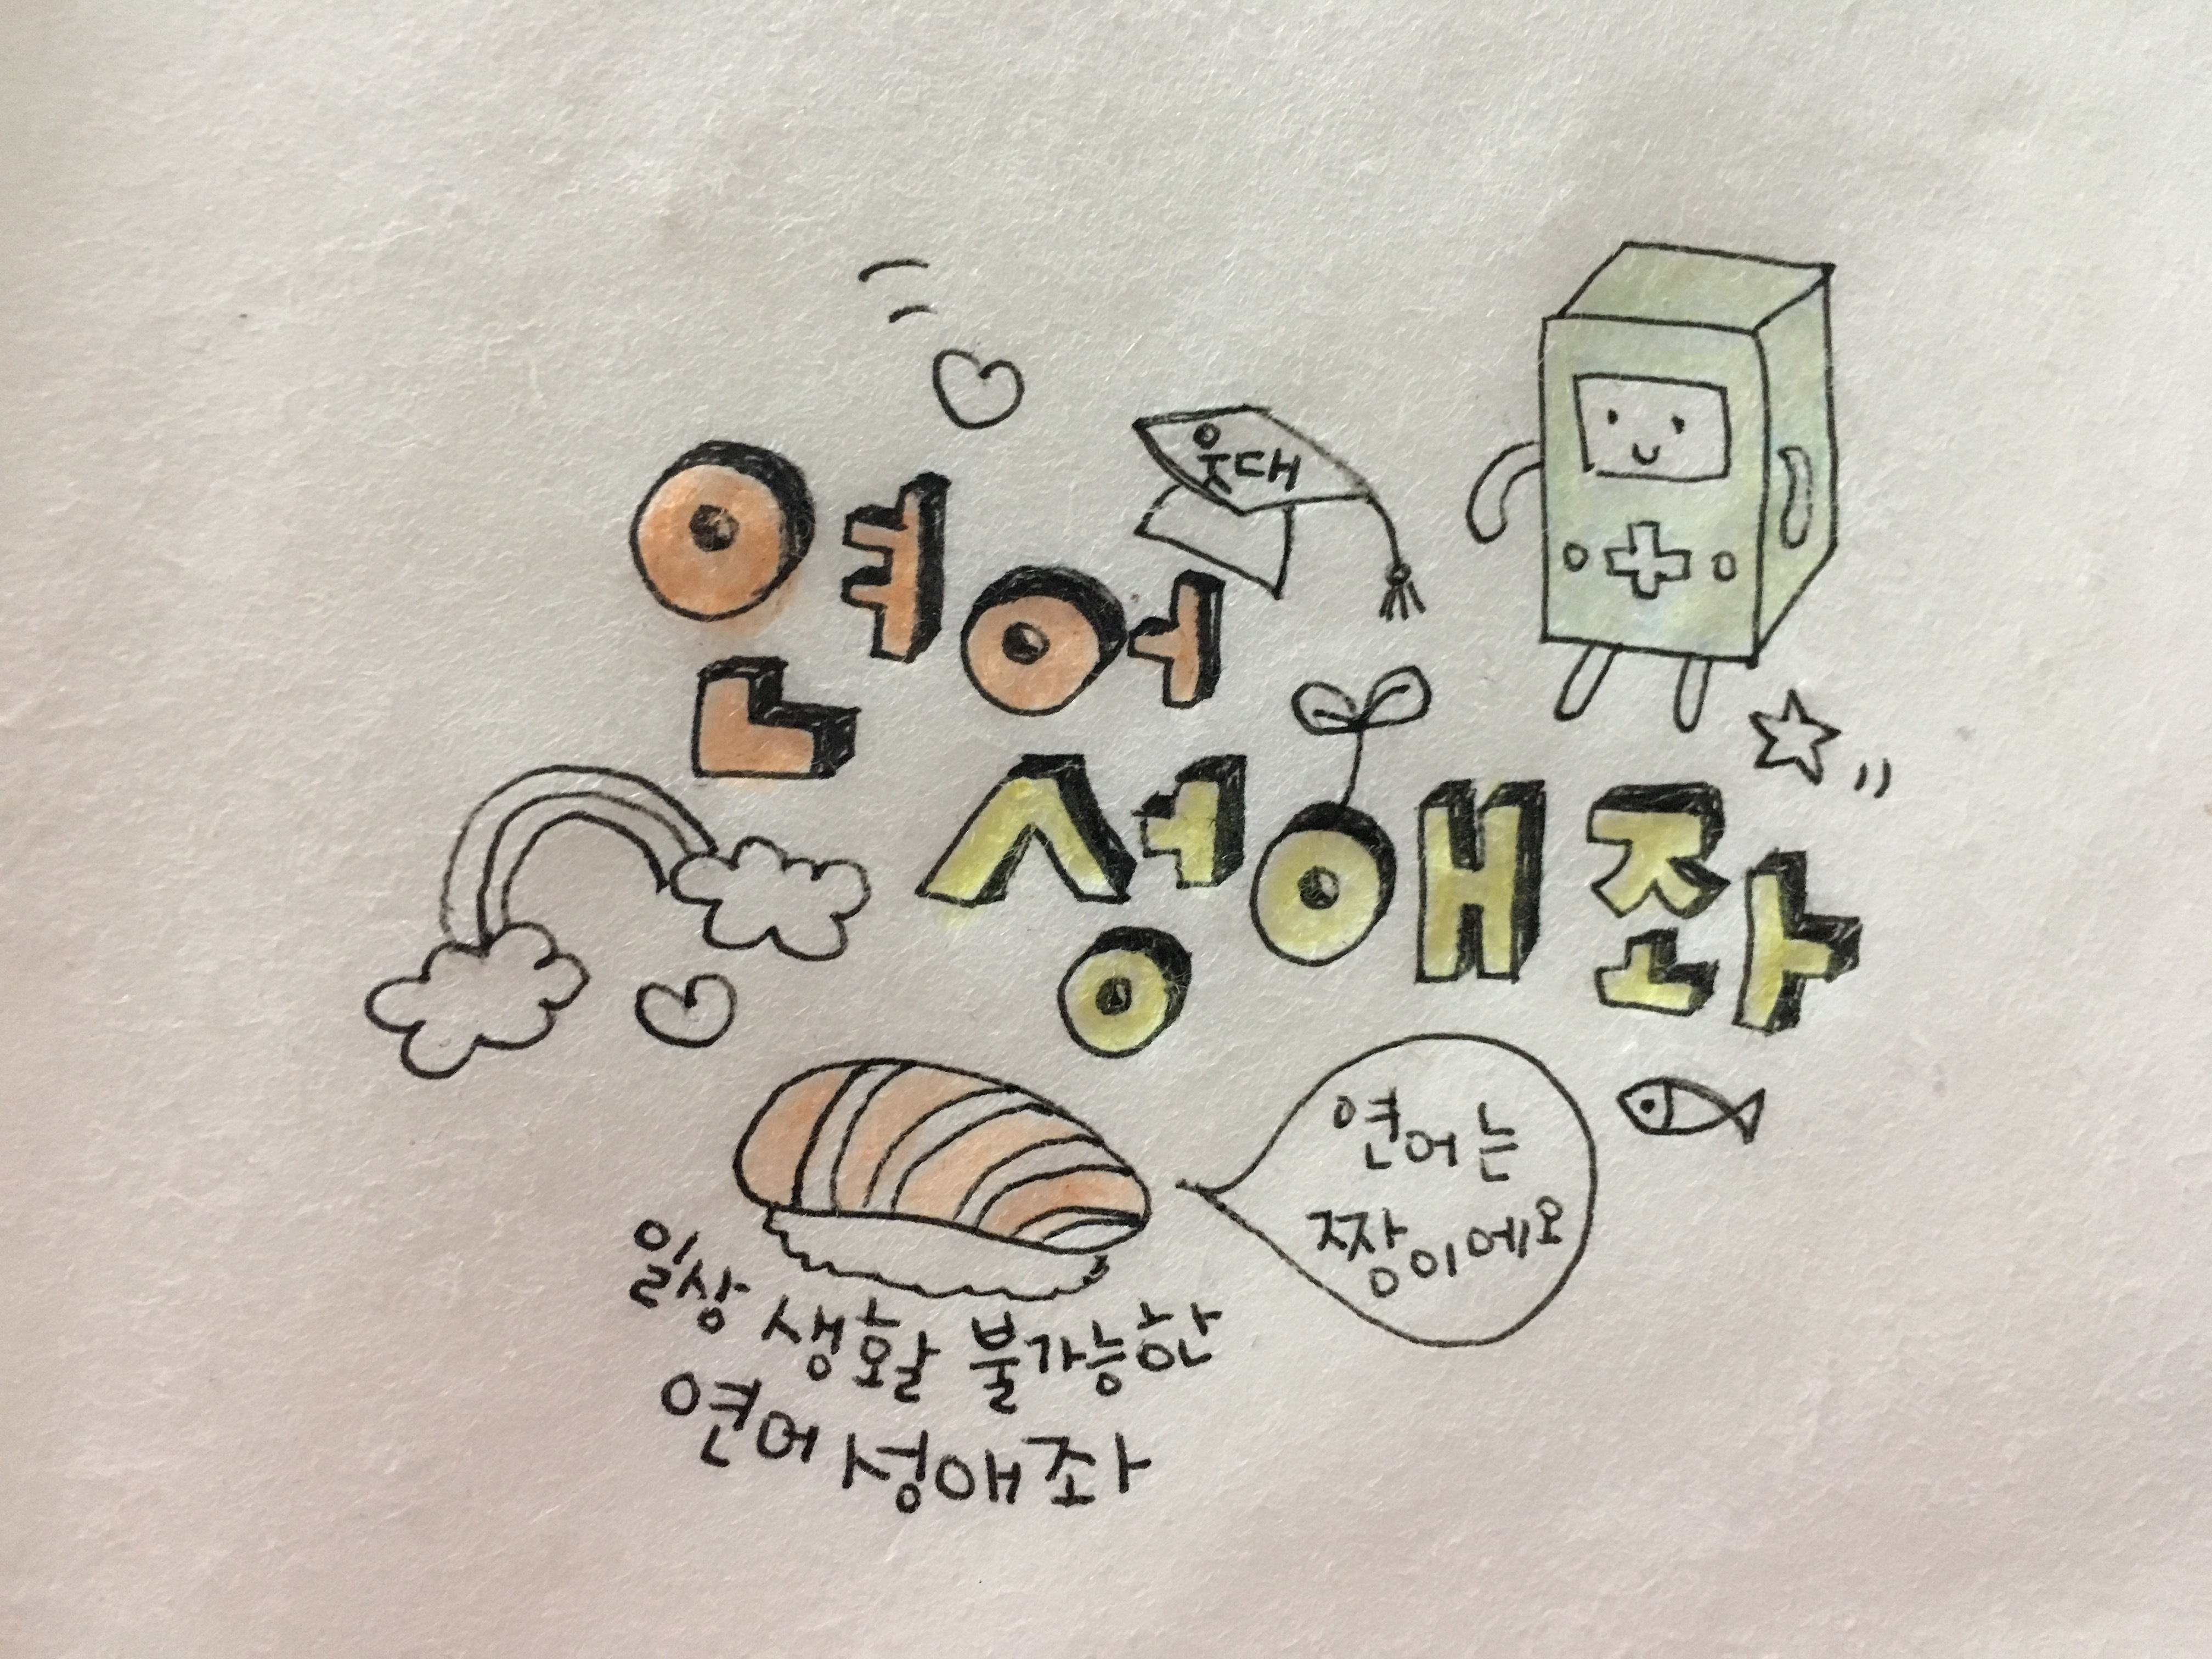 웃대
연어
성애좌
연어는
짱이에요
일상 생활 불가능한
연어 성애좌